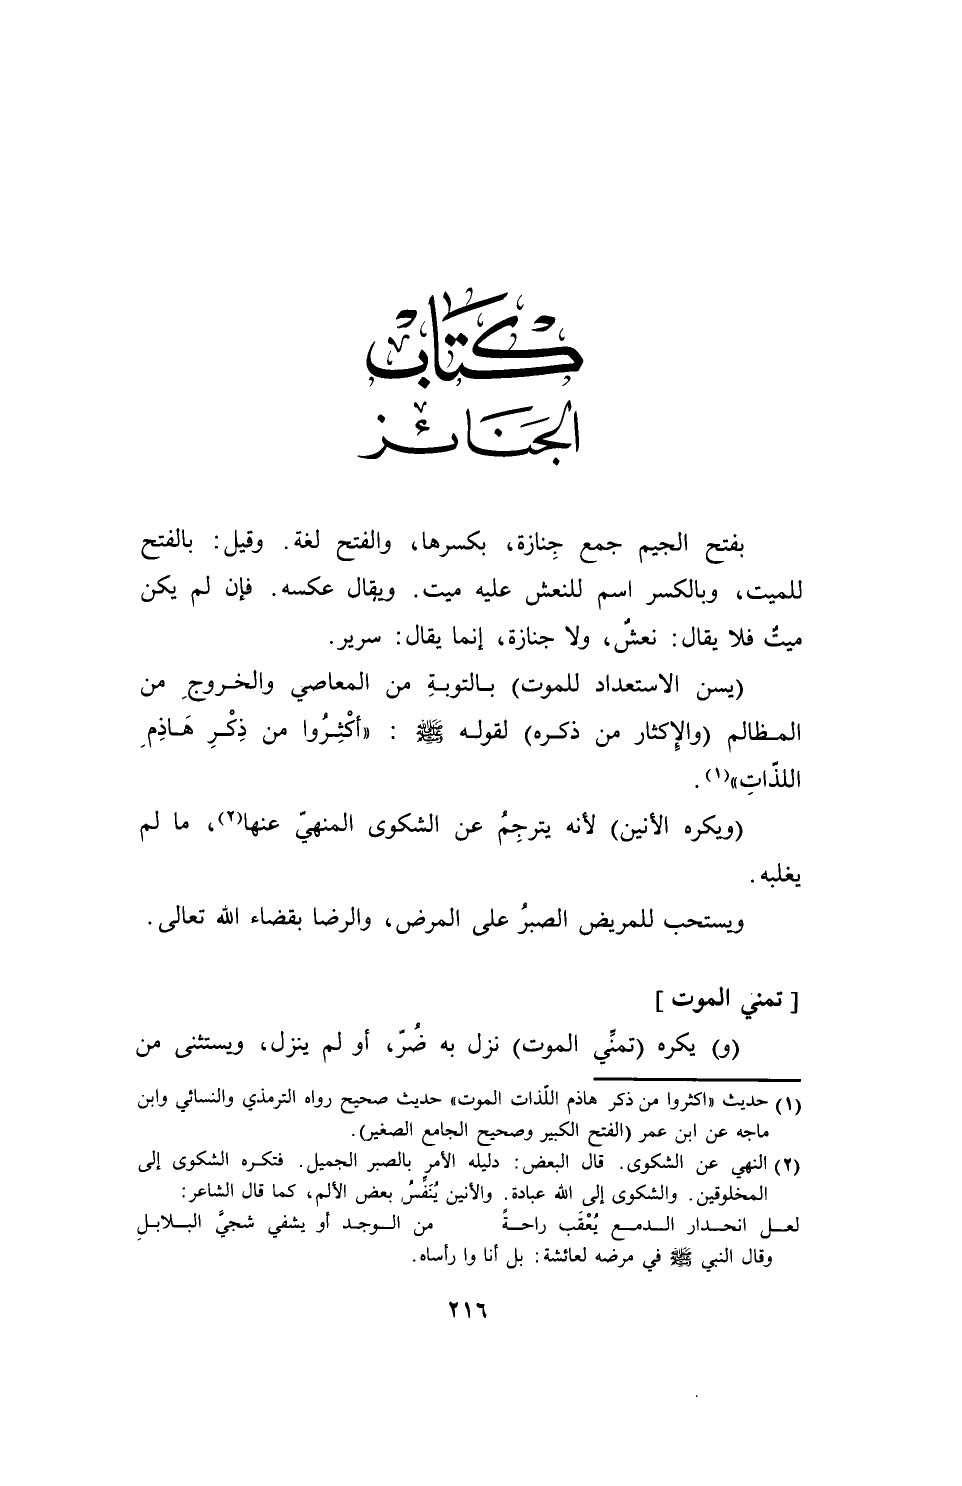 كِتَابٌ
الجَنَائز
بفتح الجيم جمع جِنازة، بكسرها، والفتح لغة. وقيل: بالفتح
للميت، وبالكسر اسم للنعش عليه ميت. ويقال عكسه. فإن لم يكن
ميتٌ فلا يقال: نعشٌ، ولا جنازة، إنما يقال: سرير.
(يسن الاستعداد للموت) بـالتوبـةِ من المعاصي والخـروجِ من
المـظالم (والإكثار من ذكـره) لقولـه ﷺ : «أكْثِـرُوا من ذِكْـرِ هَـاذِمِ
اللذّاتِ»(١).
(ويكره الأنين) لأنه يترجِمُ عن الشكوى المنهيّ عنها(٢)، ما لم
يغلبه.
ويستحب للمريض الصبرُ على المرض، والرضا بقضاء الله تعالى.
[ تمني الموت ]
(و) يكره (تمنِّي الموت) نزل به ضُرّ، أو لم ينزل، ويستثنى من
(١) حديث «اكثروا من ذكر هاذم اللّذات الموت» حديث صحيح رواه الترمذي والنسائي وابن
ماجه عن ابن عمر (الفتح الكبير وصحيح الجامع الصغير).
(٢) النهي عن الشكوى. قال البعض: دليله الأمر بالصبر الجميل. فتكـره الشكوى إلى
المخلوقين. والشكوى إلى الله عبادة. والأنين يُنَفِّسُ بعض الألم، كما قال الشاعر:
لعـل انحـدار الـدمـع يُعْقَب راحـةً من الـوجـد أو يشفي شجيَّ البـلابـلِ
وقال النبي ﷺ في مرضه لعائشة: بل أنا وا رأساه.
٢١٦